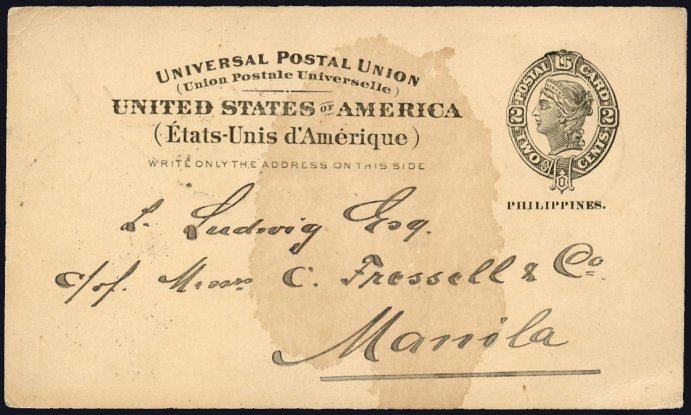 UNIVERSAL POSTAL UNION
(Union Postale Universelle)
UNITED STATES OF AMERICA
(États-Unis d'Amérique)
WRITE ONLY THE ADDRESS ON THIS SIDE
POSTAL 15 CARD
2 2
TWO CENTS
PHILIPPINES.
L. Ludwig Esq.
c/of. Messrs C. Fressell & Co.
Manila